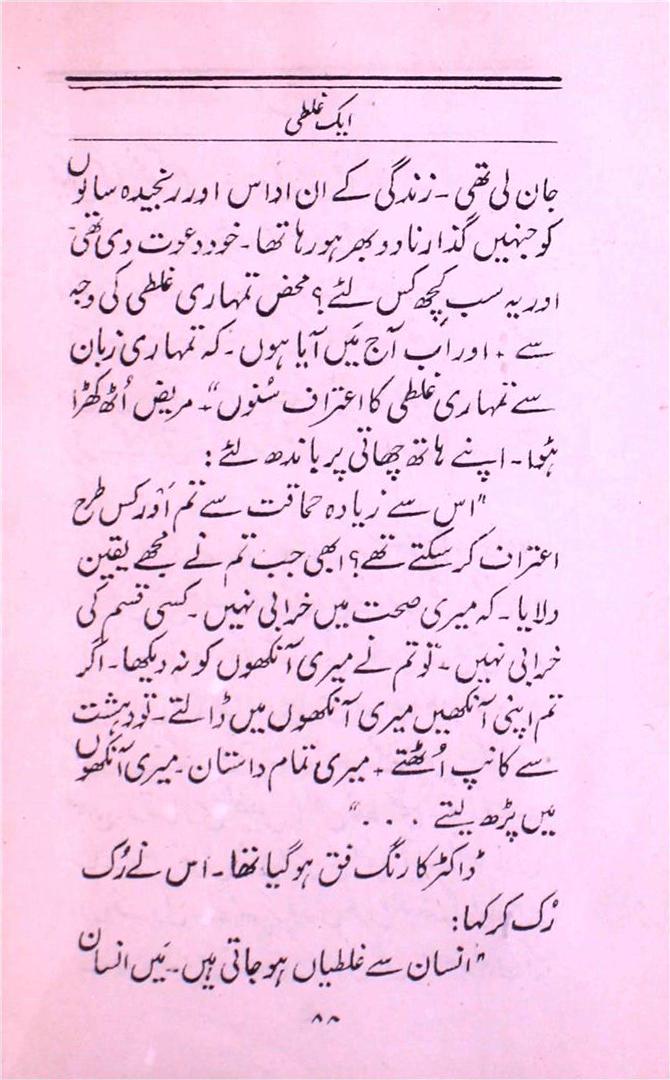 ایک غلطی
جان لی تھی۔ زندگی کے ان اداس اور رنجیدہ سالوں
کو جنہیں گذارنا دوبھر ہو رہا تھا۔ خود دعوت دی تھی
اور یہ سب کچھ کس لئے؟ محض تمہاری غلطی کی وجہ
سے ۔ اور اب آج مَیں آیا ہوں۔ کہ تمہاری زبان
سے تمہاری غلطی کا اعتراف سُنوں"۔ مریض اُٹھ کھڑا
ہؤا۔ اپنے ہاتھ چھاتی پر باندھ لئے:
"اس سے زیادہ حماقت سے تم اَور کس طرح
اعتراف کر سکتے تھے؟ ابھی جب تم نے مجھے یقین
دلایا۔ کہ میری صحت میں خرابی نہیں۔ کسی قسم کی
خرابی نہیں۔ تو تم نے میری آنکھوں کو نہ دیکھا۔ اگر
تم اپنی آنکھیں میری آنکھوں میں ڈالتے۔ تو دہشت
سے کانپ اُٹھتے ۔ میری تمام داستان۔ میری آنکھوں
میں پڑھ لیتے . . ."
ڈاکٹر کا رنگ فق ہو گیا تھا۔ اس نے رُک
رُک کر کہا:
"انسان سے غلطیاں ہو جاتی ہیں۔ مَیں انسان
۸۸